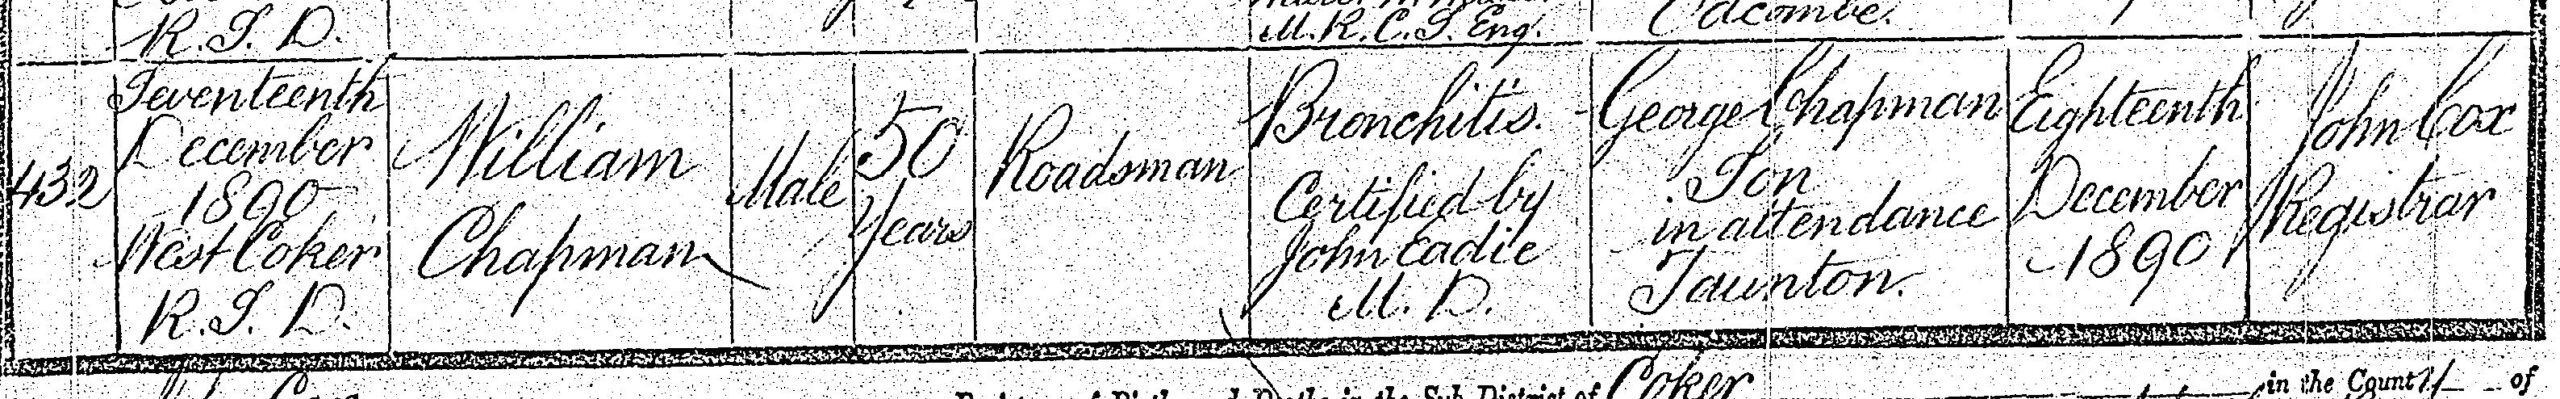 R.S.D.
M.R.C.S. Eng.
432
Seventeenth
December
1890
West Coker
R.S.D.
William
Chapman
Male
50
Years
Roadsman
Bronchitis.
Certified by
John Eadie
M.D.
George Chapman
Son
in attendance
Taunton.
Eighteenth
December
1890
John Cox
Registrar
Sub-District of Coker in the County of